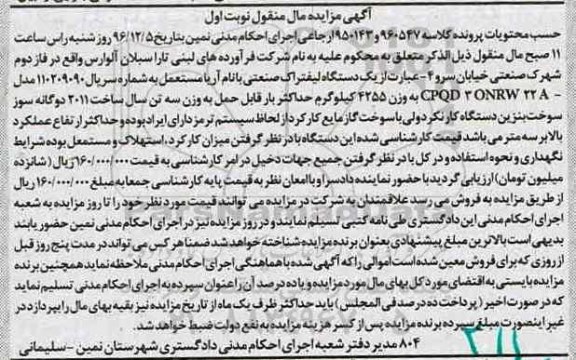 آگهی مزایده مال منقول نوبت اول
حسب محتویات پرونده کلاسه ۹۶۰۵۴۷و۹۵۰۱۴۳ ارجاعی اجرای احکام مدنی نمین بتاریخ ۹۶/۱۲/۵ روز شنبه راس ساعت
۱۱ صبح مال منقول ذیل الذکر متعلق به محکوم علیه به نام شرکت فرآورده های لبنی تارا سبلان آلوارس واقع در فاز دوم
شهرک صنعتی خیابان سرو ۴ - عبارت از یک دستگاه لیفتراک صنعتی با نام آریا مستعمل به شماره سریال ۱۱۰۲۰۹۰۹۰ مدل
CPQD ۳ ONRW ۲۲ A - به وزن ۴۲۵۵ کیلوگرم حداکثر بار قابل حمل به وزن سه تن سال ساخت ۲۰۱۱ دوگانه سوز
سوخت بنزین دستگاه کار نکرد ولی با سوخت گاز مایع کار کرد از لحاظ سیستم ترمز دارای ایراد بوده و حداکثر ارتفاع عملکرد
بالابر سه متر می باشد قیمت کارشناسی شده این دستگاه با در نظر گرفتن میزان کارکرد، استهلاک و مستعمل بوده شرایط
نگهداری و نحوه استفاده و در کل با در نظر گرفتن جمیع جهات دخیل در امر کارشناسی به قیمت ۱۶۰/۰۰۰/۰۰۰ریال (شانزده
میلیون تومان) ارزیابی گردید با حضور نماینده دادسرا و با امعان نظر به قیمت پایه کارشناسی جمعا به مبلغ ۱۶۰/۰۰۰/۰۰۰ ریال
از طریق مزایده به فروش می رسد علاقمندان به شرکت در مزایده می توانند قیمت مورد نظر خود را تا روز مزایده به شعبه
اجرای احکام مدنی این دادگستری طی نامه کتبی تسلیم نمایند و در روز مزایده نیز در اجرای احکام مدنی نمین حضور یابند
بدیهی است بالاترین مبلغ پیشنهادی بعنوان برنده مزایده شناخته خواهد شد ضمنا هر کس می تواند در مدت پنج روز قبل
از روزی که برای فروش معین شده است اموالی را که آگهی شده با هماهنگی اجرای احکام مدنی ملاحظه نماید همچنین برنده
مزایده بایستی به اقتضای مورد کل بهای مال مورد مزایده و یا ده درصد آن را عنوان سپرده به اجرای احکام مدنی تسلیم نماید
که در صورت اخیر (پرداخت ده درصد فی المجلس) باید حداکثر ظرف یک ماه از تاریخ مزایده نیز بقیه بهای مال را بپردازد در
غیر اینصورت مبلغ سپرده برنده مزایده پس از کسر هزینه مزایده به نفع دولت ضبط خواهد شد.
۸۰۴ مدیر دفتر شعبه اجرای احکام مدنی دادگستری شهرستان نمین - سلیمانی